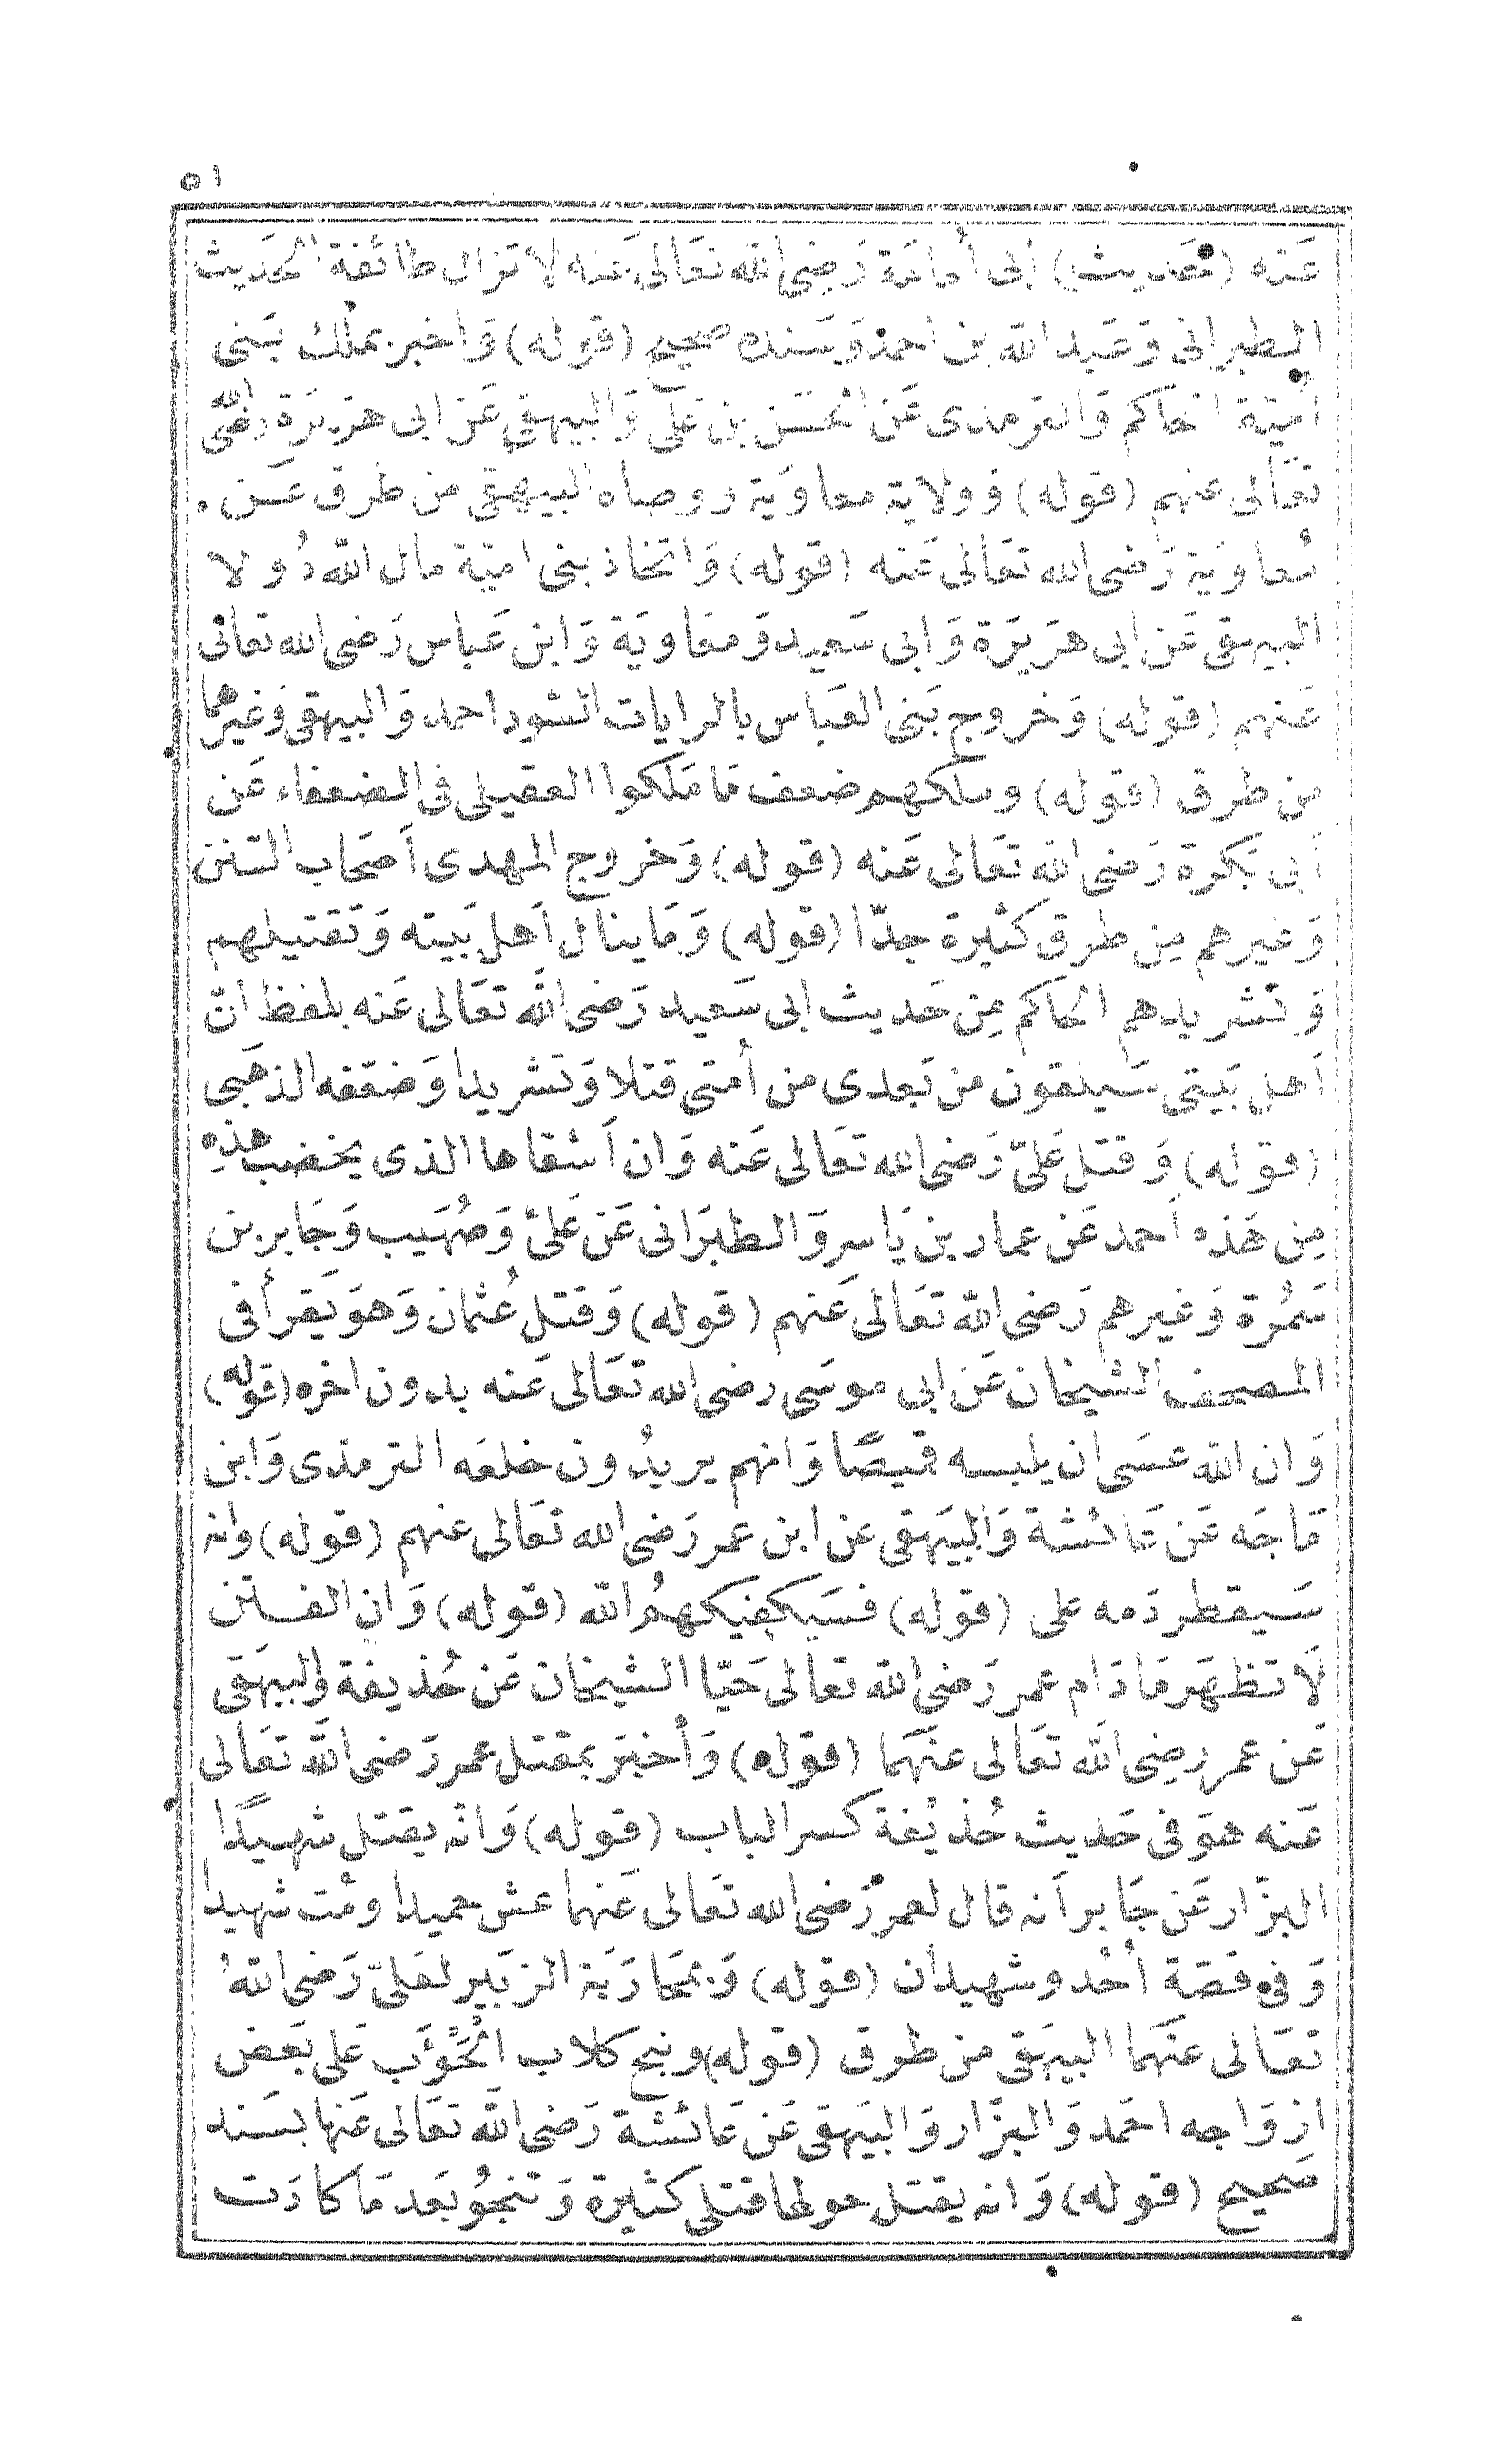 ٥١
عَنه (حَديث) أبى أمامَة رَضى الله تعَالى عَنه لا تزال طائفة الحَديث
الطبرانى وَعَبد الله بن احمدُ وَسَنده صحيح (قوله) وَاخبر بملك بَنى
أميّة الحَاكم وَالترمذى عَن الحسَن بن عَلّى وَالبيهقى عَن ابى هرَيرَة رضى الله
تعَالى عنهم (قوله) وَولاية معاويَة ووصاه البيهقى من طرق عَن
مُعاويَة رَضى الله تعَالى عَنه (قوله) وَاتخاذ بنى اميّة مال الله دُولا
البيهقى عَن ابى هرَيرَة وَابى سَعيد وَمعَاويَة وَابن عَباس رَضى الله تعالى
عَنهم (قوله) وَخروج بَنى العَباس بالرايات السُود احمد وَالبيهقى وَغيرهما
من طرق (قوله) وملكهم ضعف مَا مَلكوا العقيلى فى الضعفاء عَن
أبى بَكرة رَضى الله تعَالى عَنه (قوله) وَخروج المهدى أصحَاب السّنن
وَغيرهم مِن طرق كثيرة جدّا (قوله) وَمَا ينال أهل بَيته وَتقتيلهم
وَتشريدهم الحَاكم مِن حَديث ابى سَعيد رَضى الله تعَالى عَنه بلفظ انّ
أهل بَيتى سَيلقون من بَعدى من أمتى قتلا وَتشريدا وَضعّفه الذهبى
(قوله) وَقتل عَلىّ رَضى الله تعَالى عَنه وَان أشقاها الذى يخضب هذِهِ
مِن هَذه أحمد عَن عمار بن يَاسر وَالطبَرَانى عَن عَلىّ وَصُهَيب وَجَابر بن
سَمُرة وَغيرهم رَضى الله تعَالى عَنهم (قوله) وَقتل عُثمان وَهوَ يَقرأ فى
المصحف الشيخان عَن ابى موسَى رضى الله تعَالى عَنه بدون اخره (قوله)
وَان الله عسَى ان يلبسه قميصًا وَانهم يريدُون خلعَه الترمذى وَابن
مَاجَه عَن عَائشة وَالبَيهَقى عن ابن عمر رَضى الله تعَالى عنهم (قوله) وانه
سَيقطر دَمه على (قوله) فسَيكفيكهمُ الله (قوله) وَان الفتن
لَا تظهَر مَا دَام عمر رَضى الله تعالى حَيّا الشيخان عَن حُذيفة والبيهَقى
عَن عمر رضى الله تعَالى عنهَما (قوله) وَأُخبَر بمقتل عمر رَضى الله تعَالى
عَنه هوَ فى حَديث حُذيْفة كسر الباب (قوله) وَانّه يقتل شهيدًا
البزّار عَن جَابر أنه قال لعمر رَضى الله تعَالى عَنهما عش حميدا ومُت شهيدا
وَفى قصَة أُحُد وشهيدان (قوله) وَبمحَارَبَة الزبَير لعَلىّ رَضى اللهُ
تعَالى عنهَما البيهَقى من طرق (قوله) ونبح كلاب الْحَوْءَب عَلى بَعض
ازوَاجه احمَد وَالبزّار وَالبَيهَقى عَن عَائشَة رَضى الله تعَالى عَنها بسَند
صَحيح (قوله) وَانه يقتل حولها قتلى كثيرة وَتنجُو بَعد مَا كادَت